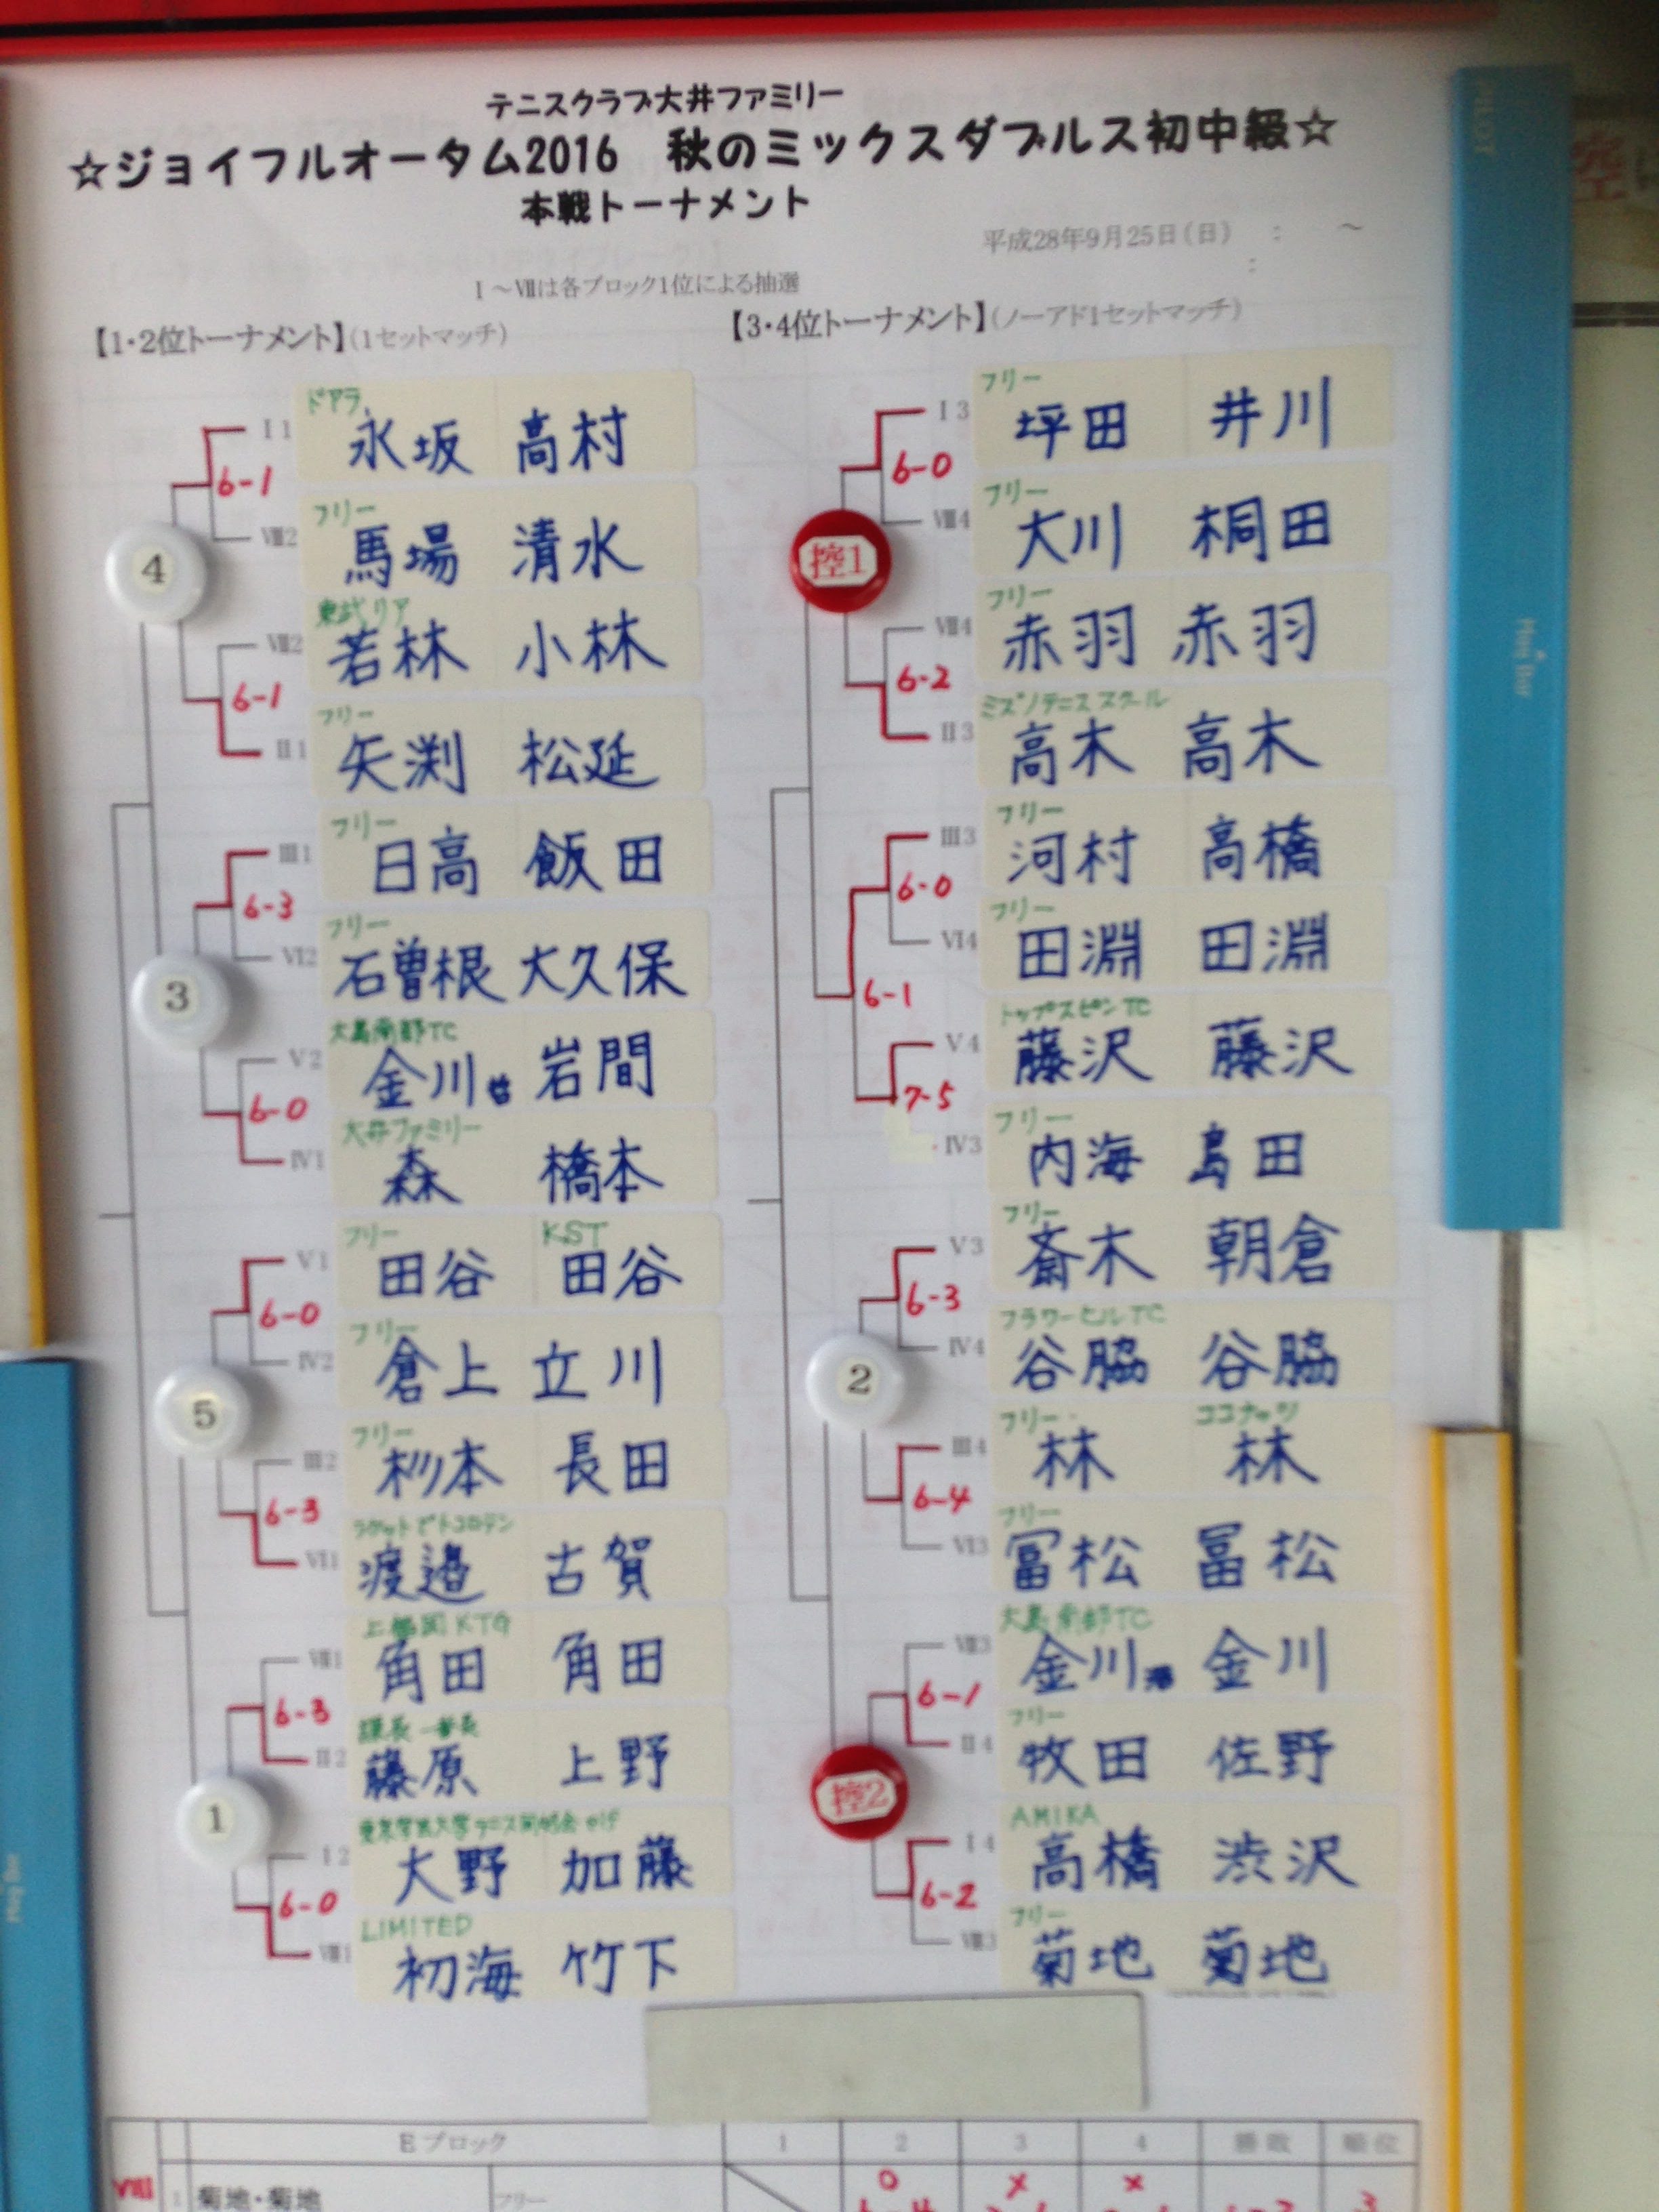 テニスクラブ大井ファミリー
☆ジョイフルオータム2016 秋のミックスダブルス初中級☆
本戦トーナメント
平成28年9月25日(日) : ～
:
Ⅰ～Ⅷは各ブロック1位による抽選
【1・2位トーナメント】(1セットマッチ)
Ⅰ1 ドアラ
永坂 高村
6-1
Ⅷ2 フリー
馬場 清水
4
Ⅶ2
若林 小林
6-1
Ⅱ1 フリー
矢渕 松延
Ⅲ1 フリー
日高 飯田
6-3
Ⅵ2 フリー
石曽根 大久保
3
Ⅴ2 大島南部TC
金川 岩間
6-0
Ⅳ1 大井ファミリー
森 橋本
Ⅴ1 フリー KST
田谷 田谷
6-0
Ⅳ2 フリー
倉上 立川
5
Ⅲ2 フリー
杉本 長田
6-3
Ⅵ1
渡邉 古賀
Ⅶ1 上福岡KTG
角田 角田
6-3
Ⅱ2
藤原 上野
1
Ⅰ2
大野 加藤
6-0
Ⅷ1 LIMITED
初海 竹下
【3・4位トーナメント】(ノーアド1セットマッチ)
Ⅰ3 フリー
坪田 井川
6-0
Ⅷ4 フリー
大川 桐田
控1
Ⅶ4 フリー
赤羽 赤羽
6-2
Ⅱ3 ミズノテニススクール
高木 高木
Ⅲ3 フリー
河村 高橋
6-0
Ⅵ4 フリー
田淵 田淵
6-1
Ⅴ4 トップスピンTC
藤沢 藤沢
7-5
Ⅳ3 フリー
内海 島田
Ⅴ3 フリー
斎木 朝倉
6-3
Ⅳ4 フラワーヒルTC
谷脇 谷脇
2
Ⅲ4 フリー ココナッツ
林 林
6-4
Ⅵ3 フリー
冨松 冨松
Ⅶ3 大島南部TC
金川 金川
6-1
Ⅱ4 フリー
牧田 佐野
控2
Ⅰ4 AMIKA
高橋 渋沢
6-2
Ⅷ3 フリー
菊地 菊地
Eブロック 1 2 3 4 勝敗 順位
VIII 1 菊地・菊地 フリー ○ × ×
控